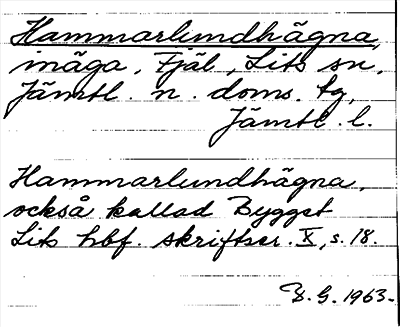 Hammarlundhägna,
inäga, Fjäl, Lits sn,
Jämtl. n. doms. tg,
Jämtl. l.
Hammarlundhägna,
också kallad Bygget
Lits hbf. skriftser. X, s. 18.
G. 1963.